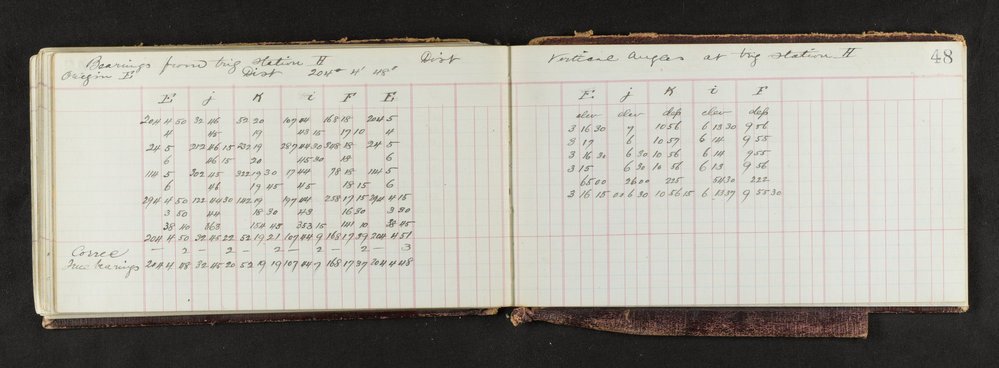 Bearings from trig station H Dist
Origin E Dist 204° 4' 48"
E j K i F E
204 4 50 32 46 52 20 107 44 168 18 204 5
4 45 19 43 15 17 10 4
24 5 212 46 15 232 19 287 44 30 348 18 24 5
6 46 15 20 45 30 18 6
114 5 302 45 322 19 30 17 44 78 18 114 5
6 46 19 45 45 18 15 6
294 4 50 122 44 30 142 19 197 44 258 17 15 294 4 15
3 50 44 18 30 43 16 30 3 30
38 40 363 154 45 353 15 141 10 38 45
204 4 50 32 45 22 52 19 21 107 44 9 168 17 39 204 4 51
Corrn — 2 — 2 — 2 — 2 — 2 — 3
True bearings 204 4 48 32 45 20 52 19 19 107 44 7 168 17 37 204 4 48
Vertical Angles at trig station H 48
E j K i F
elev elev dep elev dep
3 16 30 7 10 56 6 13 30 9 56
3 17 6 10 57 6 14 9 55
3 16 30 6 30 10 56 6 14 9 55
3 15 6 30 10 56 6 13 9 56
65 00 26 00 225 54 30 222
3 16 15 00 6 30 10 56 15 6 13 37 9 55 30